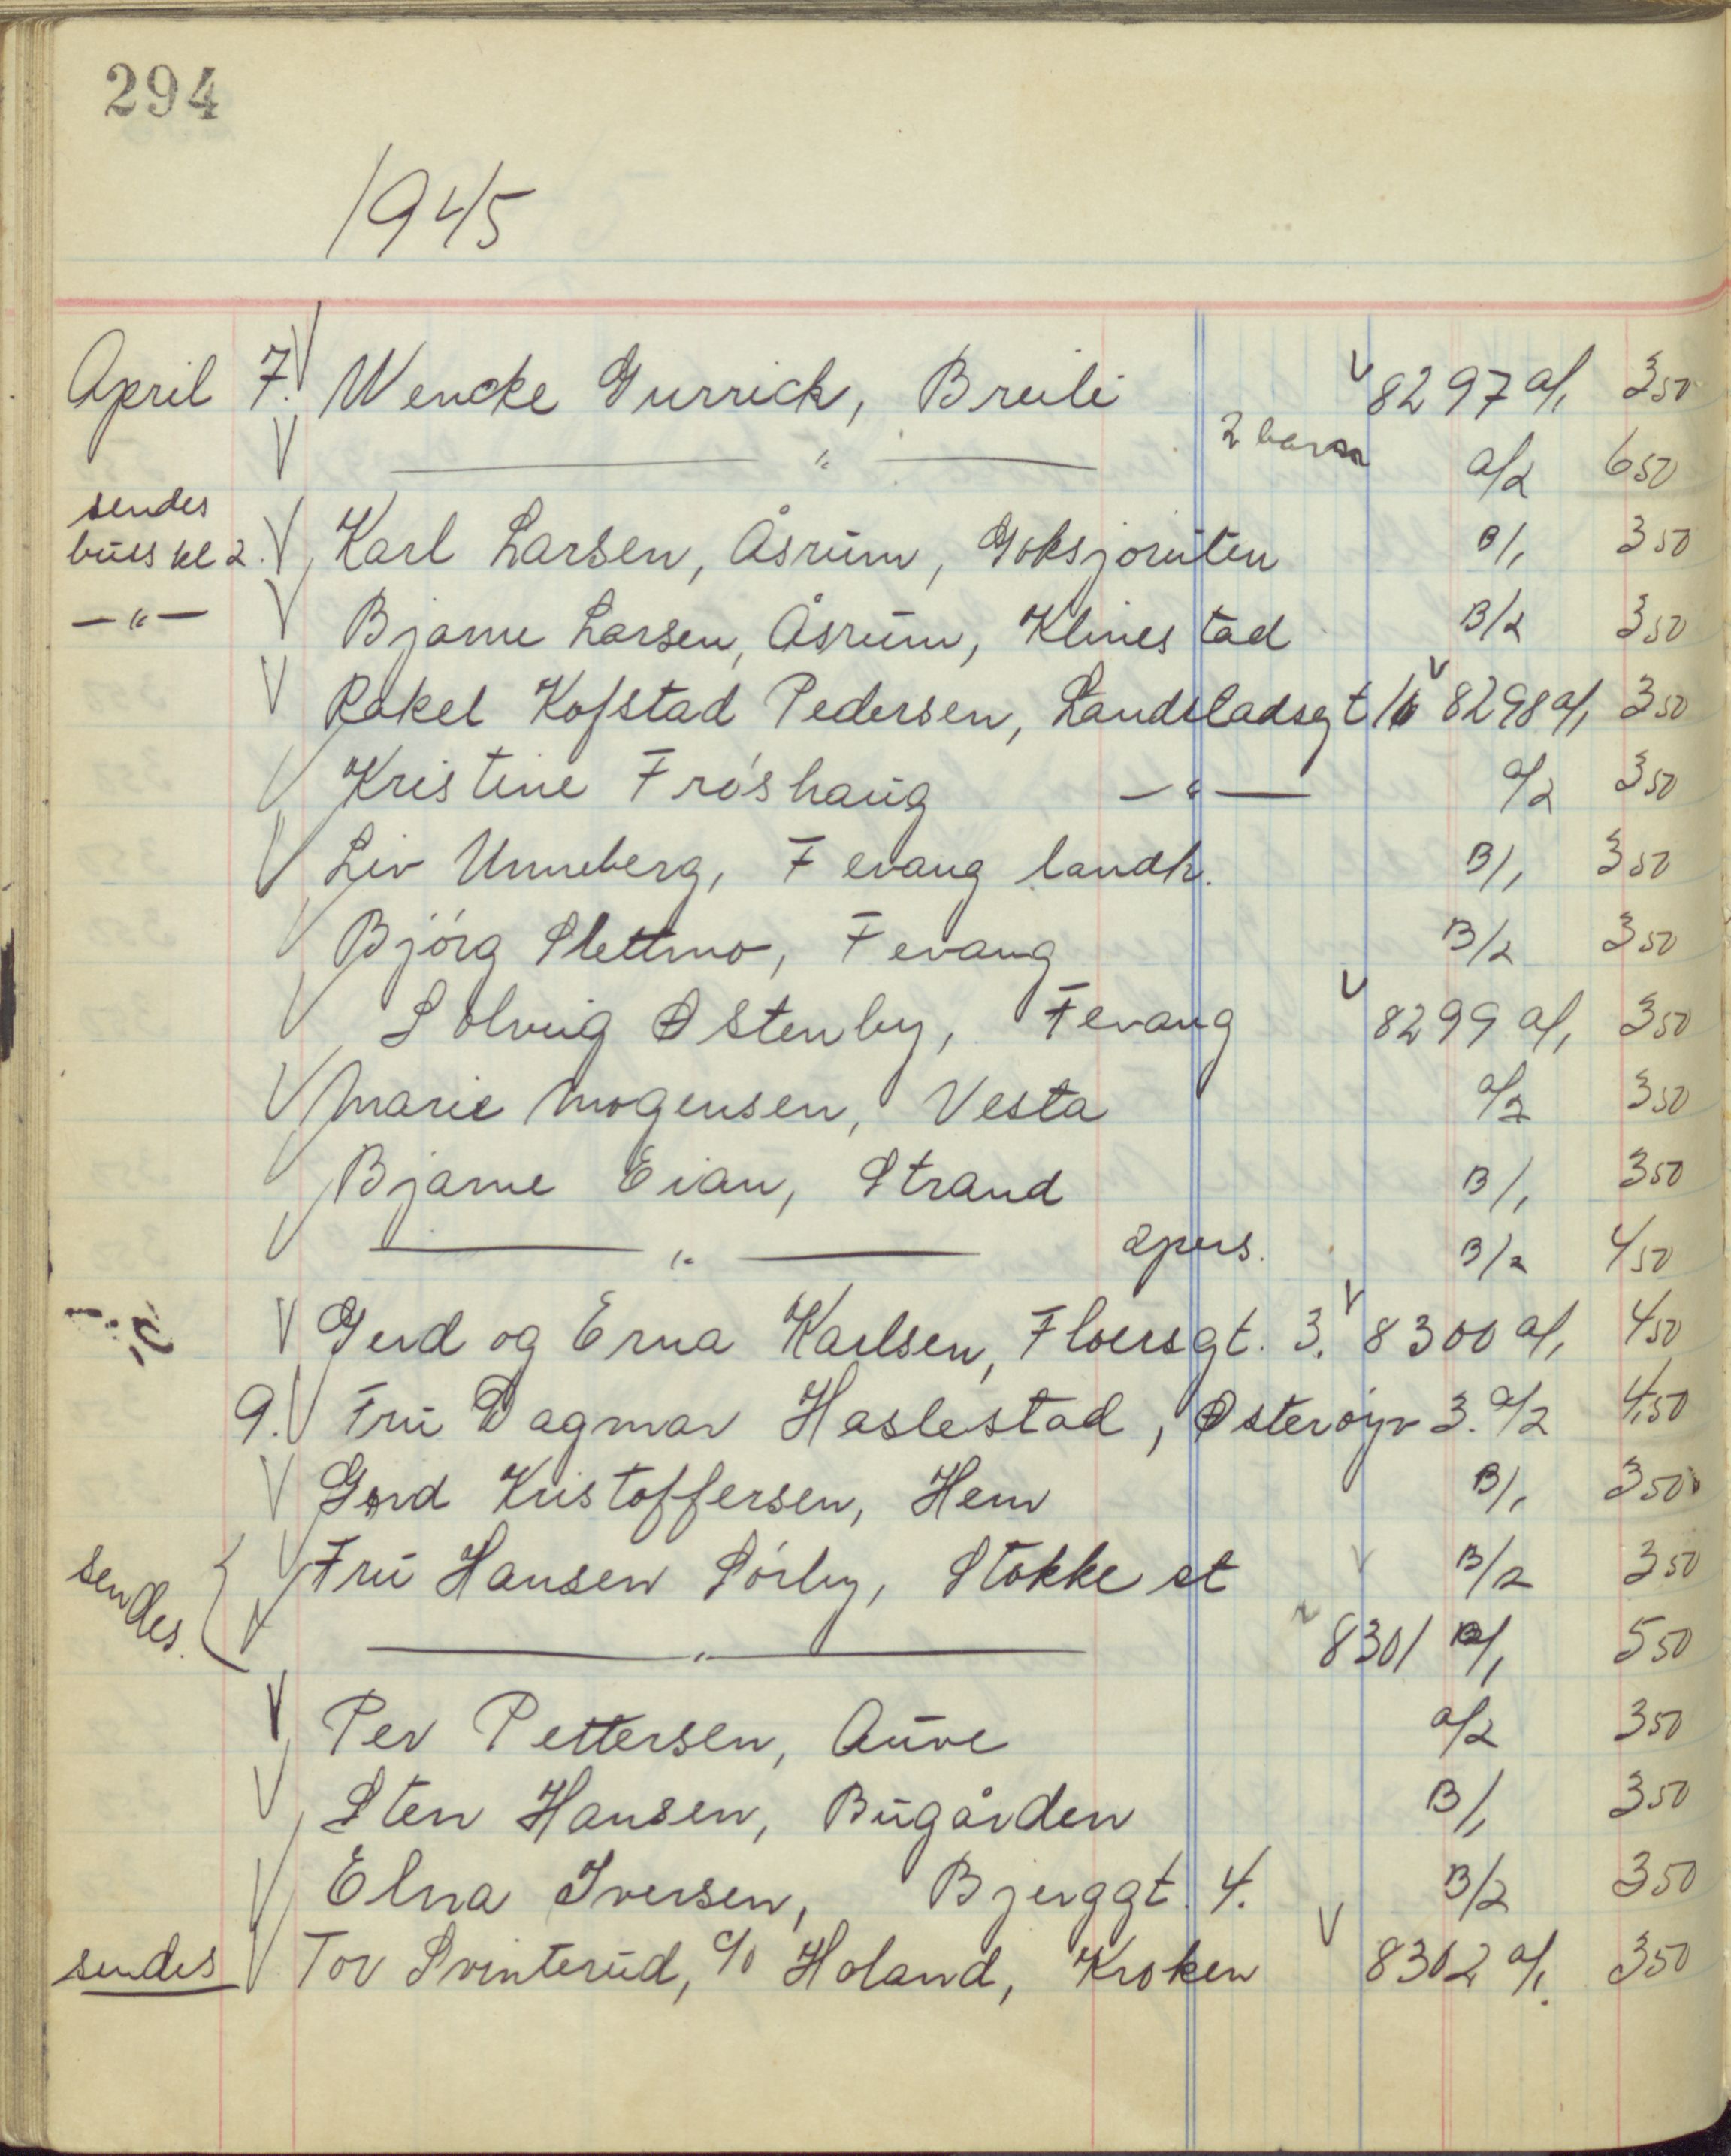 294
1945
April 7. V Wencke Gurrick, Breili V 8297 a/1 3 50
V —— " —— 2 barn a/2 6 50
sendes
buss kl 2. V Karl Larsen, Åsrum, Goksjoruten B/1 3 50
— " — V Bjarne Larsen, Åsrum, Klinestad B/2 3 50
V Rakel Kofstad Pedersen, Landstadsgt 16 V 8298 a/1 3 50
V Kristine Fröshaug — " — a/2 3 50
V Liv Unneberg, Fevang landh. B/1 3 50
V Björg Slettmo, Fevang B/2 3 50
V Solveig Østenby, Fevang V 8299 a/1 3 50
V Marie Mogensen, Vesta a/2 3 50
V Bjarne Eian, Strand B/1 3 50
V —— " —— 2 pers. B/2 4 50
V Gerd og Erna Karlsen, Floersgt. 3. V 8300 a/1 4 50
9. V Fru Dagmar Haslestad, Østeröyv 3. a/2 4,50
V Gerd Kristoffersen, Hem B/1 3 50
sendes { V Fru Hansen Sörby, Stokke st V B/2 3 50
V —— " —— V 8301 a/1 5 50
V Per Pettersen, Auve a/2 3 50
V Sten Hansen, Bugården B/1 3 50
V Elna Iversen, Bjerggt. 4. B/2 3 50
sendes V Tor Svinterud, c/o Holand, Kroken V 8302 a/1. 3 50